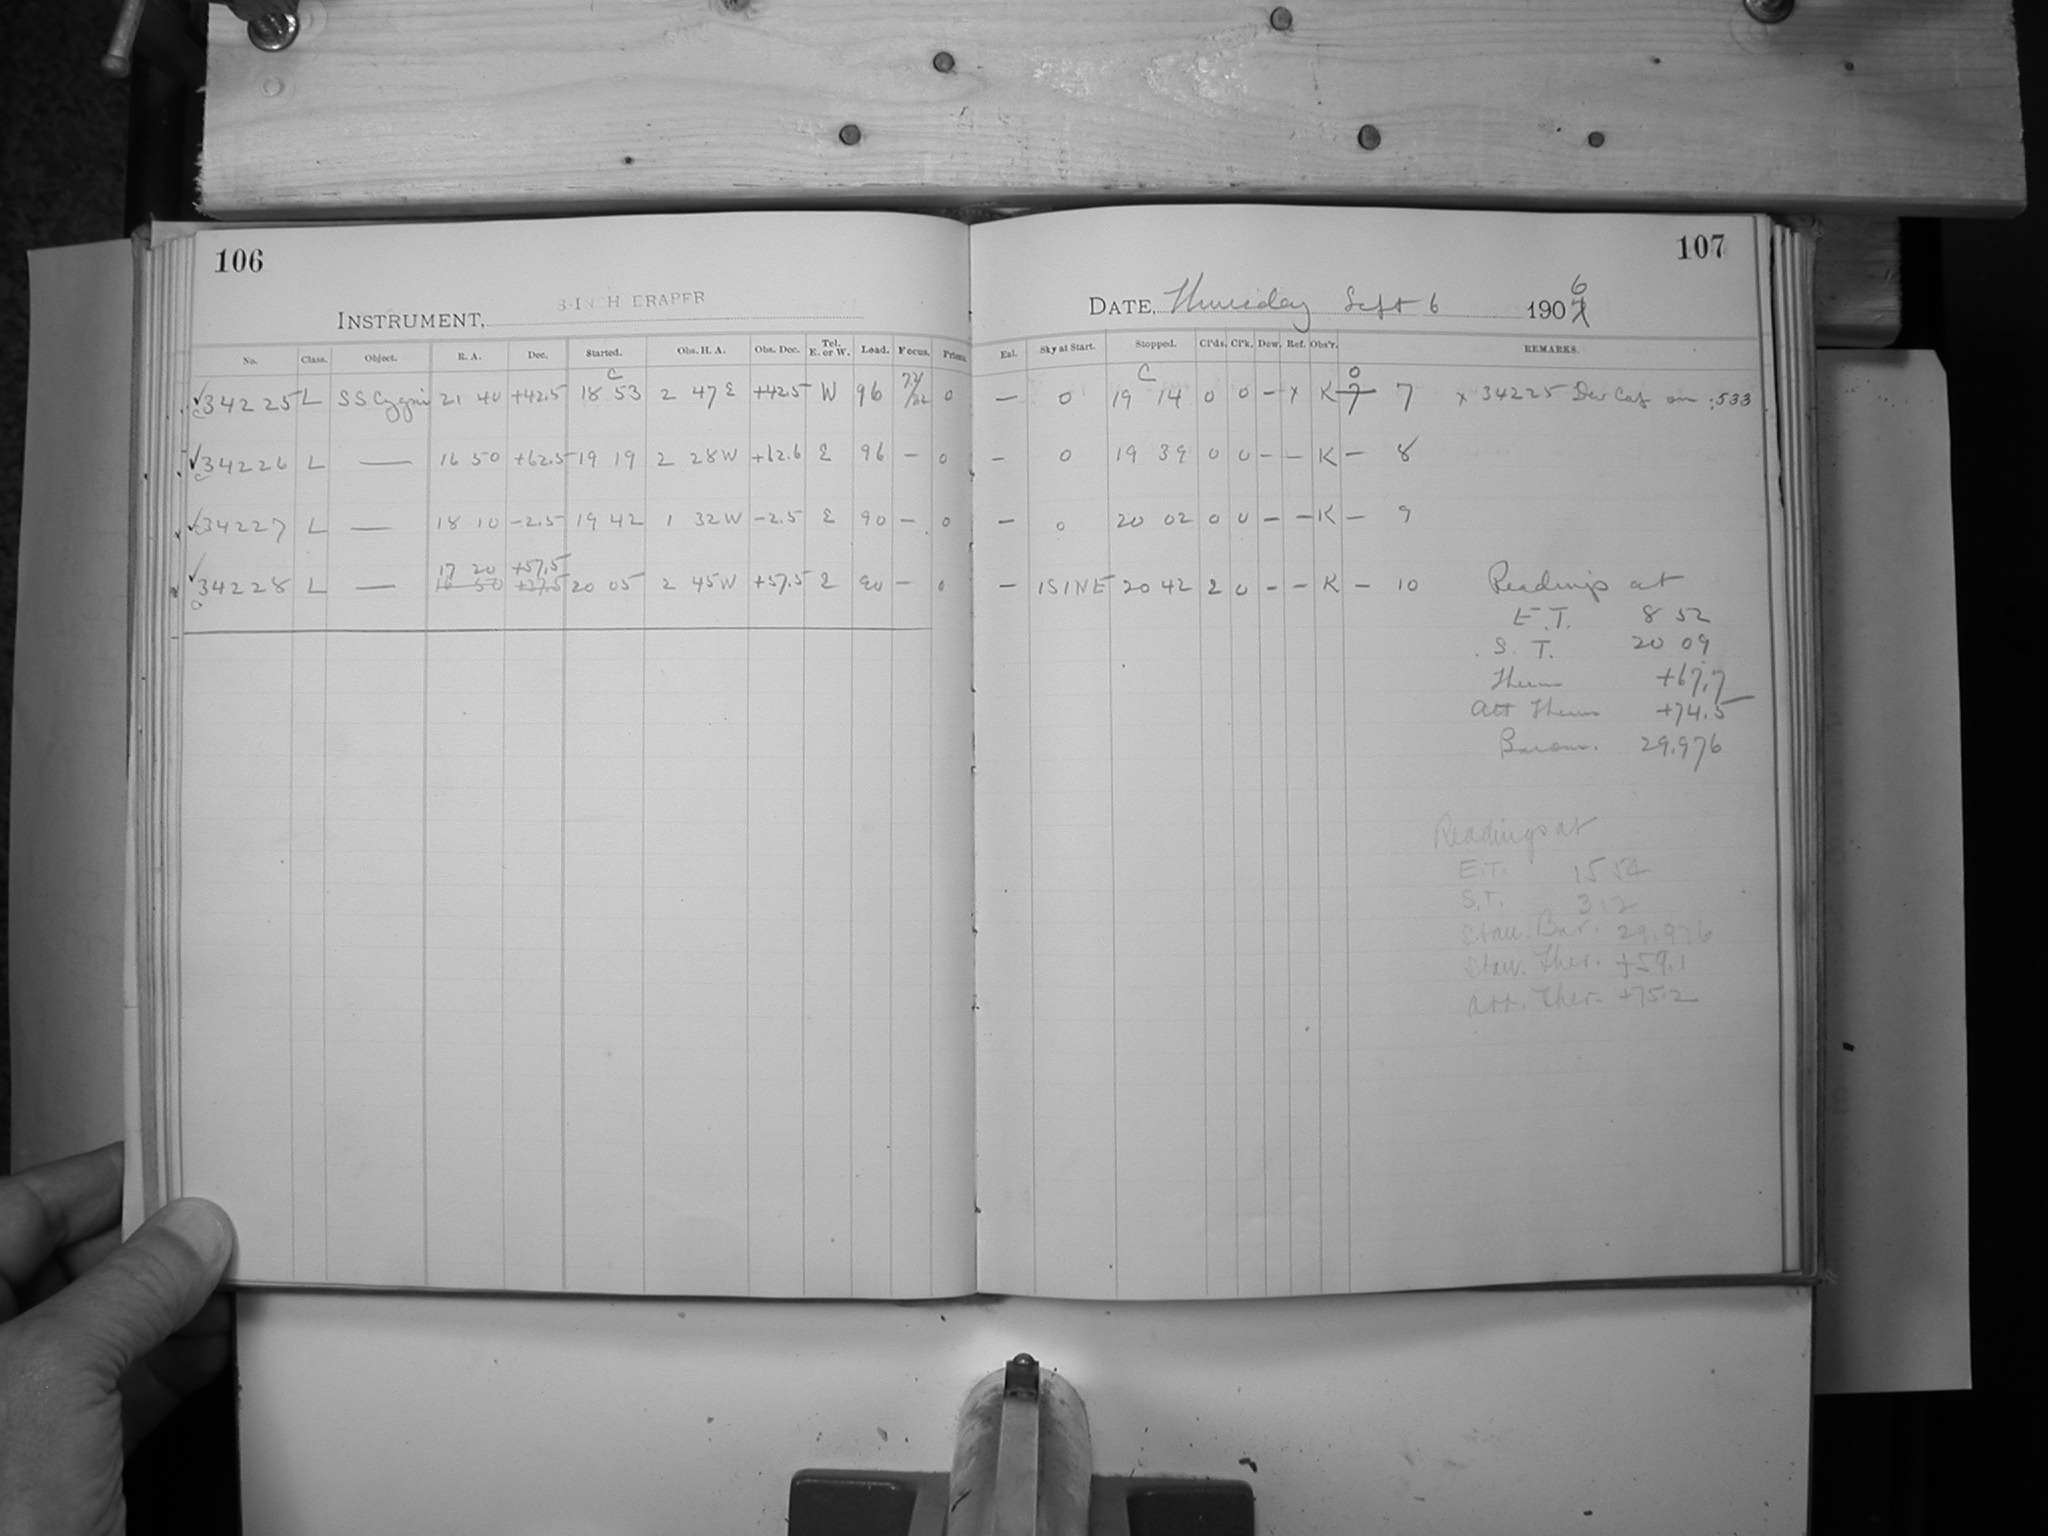 106
107
8-INCH DRAPER
INSTRUMENT,
DATE, Thursday Sept 6 1906
No. Class. Object. R. A. Dec. Started. Obs. H. A. Obs. Dec. Tel. E. or W. Load. Focus. Prisms. Enl. Sky at Start. Stopped. Cl'ds. Cl'k. Dew. Ref. Obs'r. REMARKS.
34225 L SS Cygni 21 40 +42.5 18 53 2 47 E +42.5 W 96 0 — 0 19 14 0 0 – x K 7 0 7 x 34225 Dew Cap on .533
34226 L — 16 50 +62.5 19 19 2 28 W +62.6 E 96 – 0 – 0 19 39 0 0 – – K – 8
34227 L — 18 10 –2.5 19 42 1 32 W –2.5 E 90 – 0 – 0 20 02 0 0 – – K – 9
17 20 +57.5
34228 L — 16 50 +37.5 20 05 2 45 W +57.5 E 90 – 0 – 1S1NE 20 42 2 0 – – K – 10
Readings at
E.T. 8 52
S. T. 20 09
Therm +67.7
Att Therm +74.5
Barom. 29.976
Readings at
E.T. 15 54
S.T. 3 12
Stan. Bar. 29.976
Stan. Ther. +59.1
Att. Ther. +75.2